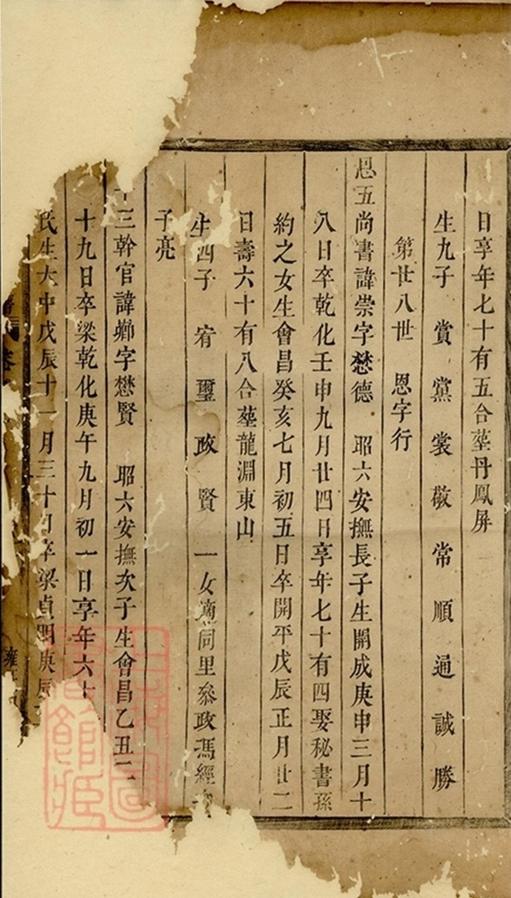 日享年七十有五合塟丹鳳屏
生九子 賞 黨 裳 敞 常 順 通 誠 勝
第廿八世 恩字行
恩五尚書諱崇字懋德 昭六安撫長子生開成庚申三月十
八日卒乾化壬申九月廿四日享年七十有四娶秘書孫
約之女生會昌癸亥七月初五日卒開平戊辰正月廿二
日壽六十有八合塟龍淵東山
生四子 宥 璽 政 賢 一女適同里叅政馮經
子亮
十三幹官諱鄉字懋賢 昭六安撫次子生會昌乙丑二
十九日卒梁乾化庚午九月初一日享年六十
氏生大中戊辰十一月三十日卒梁貞明庚辰